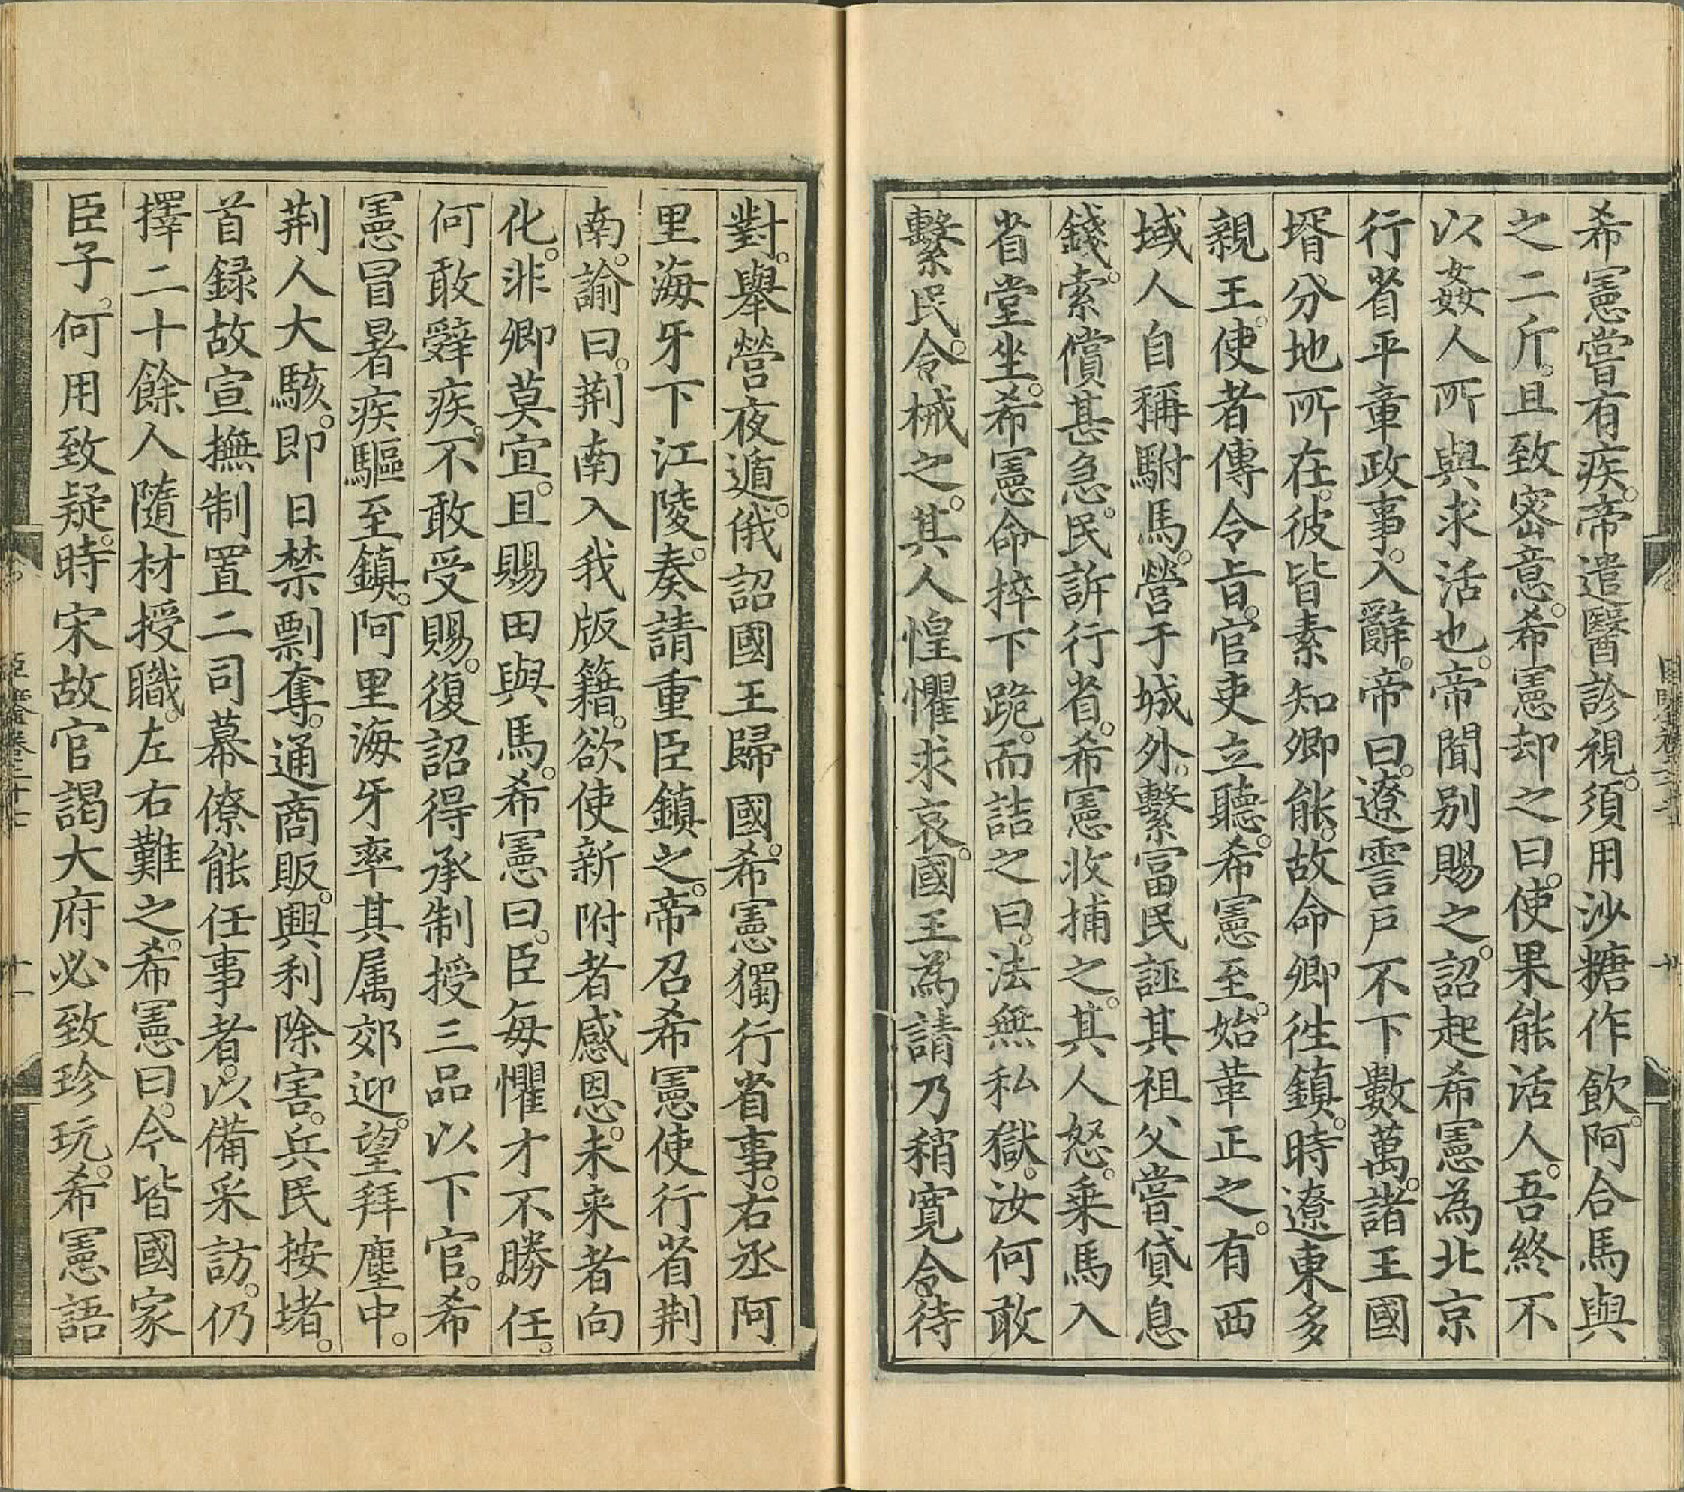 希憲嘗有疾。帝遣醫診視。須用沙糖作飲。阿合馬與
之二斤。且致密意。希憲却之曰。使果能活人。吾終不
以姦人所與求活也。帝聞別賜之。詔起希憲為北京
行省平章政事。入辭。帝曰。遼霫戶不下數萬。諸王國
壻分地所在。彼皆素知卿能。故命卿徃鎮。時遼東多
親王。使者傳令㫖。官吏立聽。希憲至。始革正之。有西
域人自稱駙馬。營于城外。繫富民誣其祖父嘗貸息
錢。索償甚急。民訴行省。希憲收捕之。其人怒。乘馬入
省堂坐。希憲命捽下跪。而詰之曰。法無私獄。汝何敢
繫民。令械之。其人惶懼求哀。國王為請。乃稍寬。令待
對。舉營夜遁。俄詔國王歸國。希憲獨行省事。右丞阿
里海牙下江陵。奏請重臣鎮之。帝召希憲使行省荆
南。諭曰。荆南入我版籍。欲使新附者感恩。未来者向
化。非卿莫宜。且賜田與馬。希憲曰。臣每懼才不勝任。
何敢辭疾。不敢受賜。復詔得承制授三品以下官。希
憲冒暑疾驅至鎮。阿里海牙率其属郊迎。望拜塵中。
荆人大駭。即日禁剽奪。通商販。興利除害。兵民按堵。
首録故宣撫制置二司幕僚能任事者。以備采訪。仍
擇二十餘人隨材授職。左右難之。希憲曰。今皆國家
臣子。何用致疑。時宋故官謁大府必致珍玩。希憲語